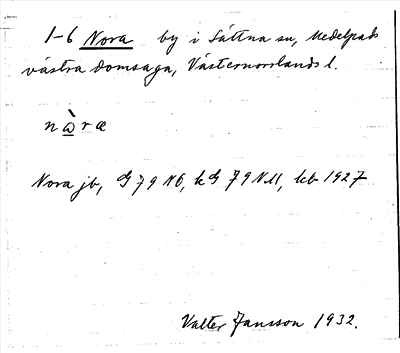 1-6 Nora by i Sättna sn, Medelpads
västra domsaga, Västernorrlands l.
n ὼ r æ
Nora jb, G 79 N6, k G 79 N11, kb 1927
Valter Jansson 1932.